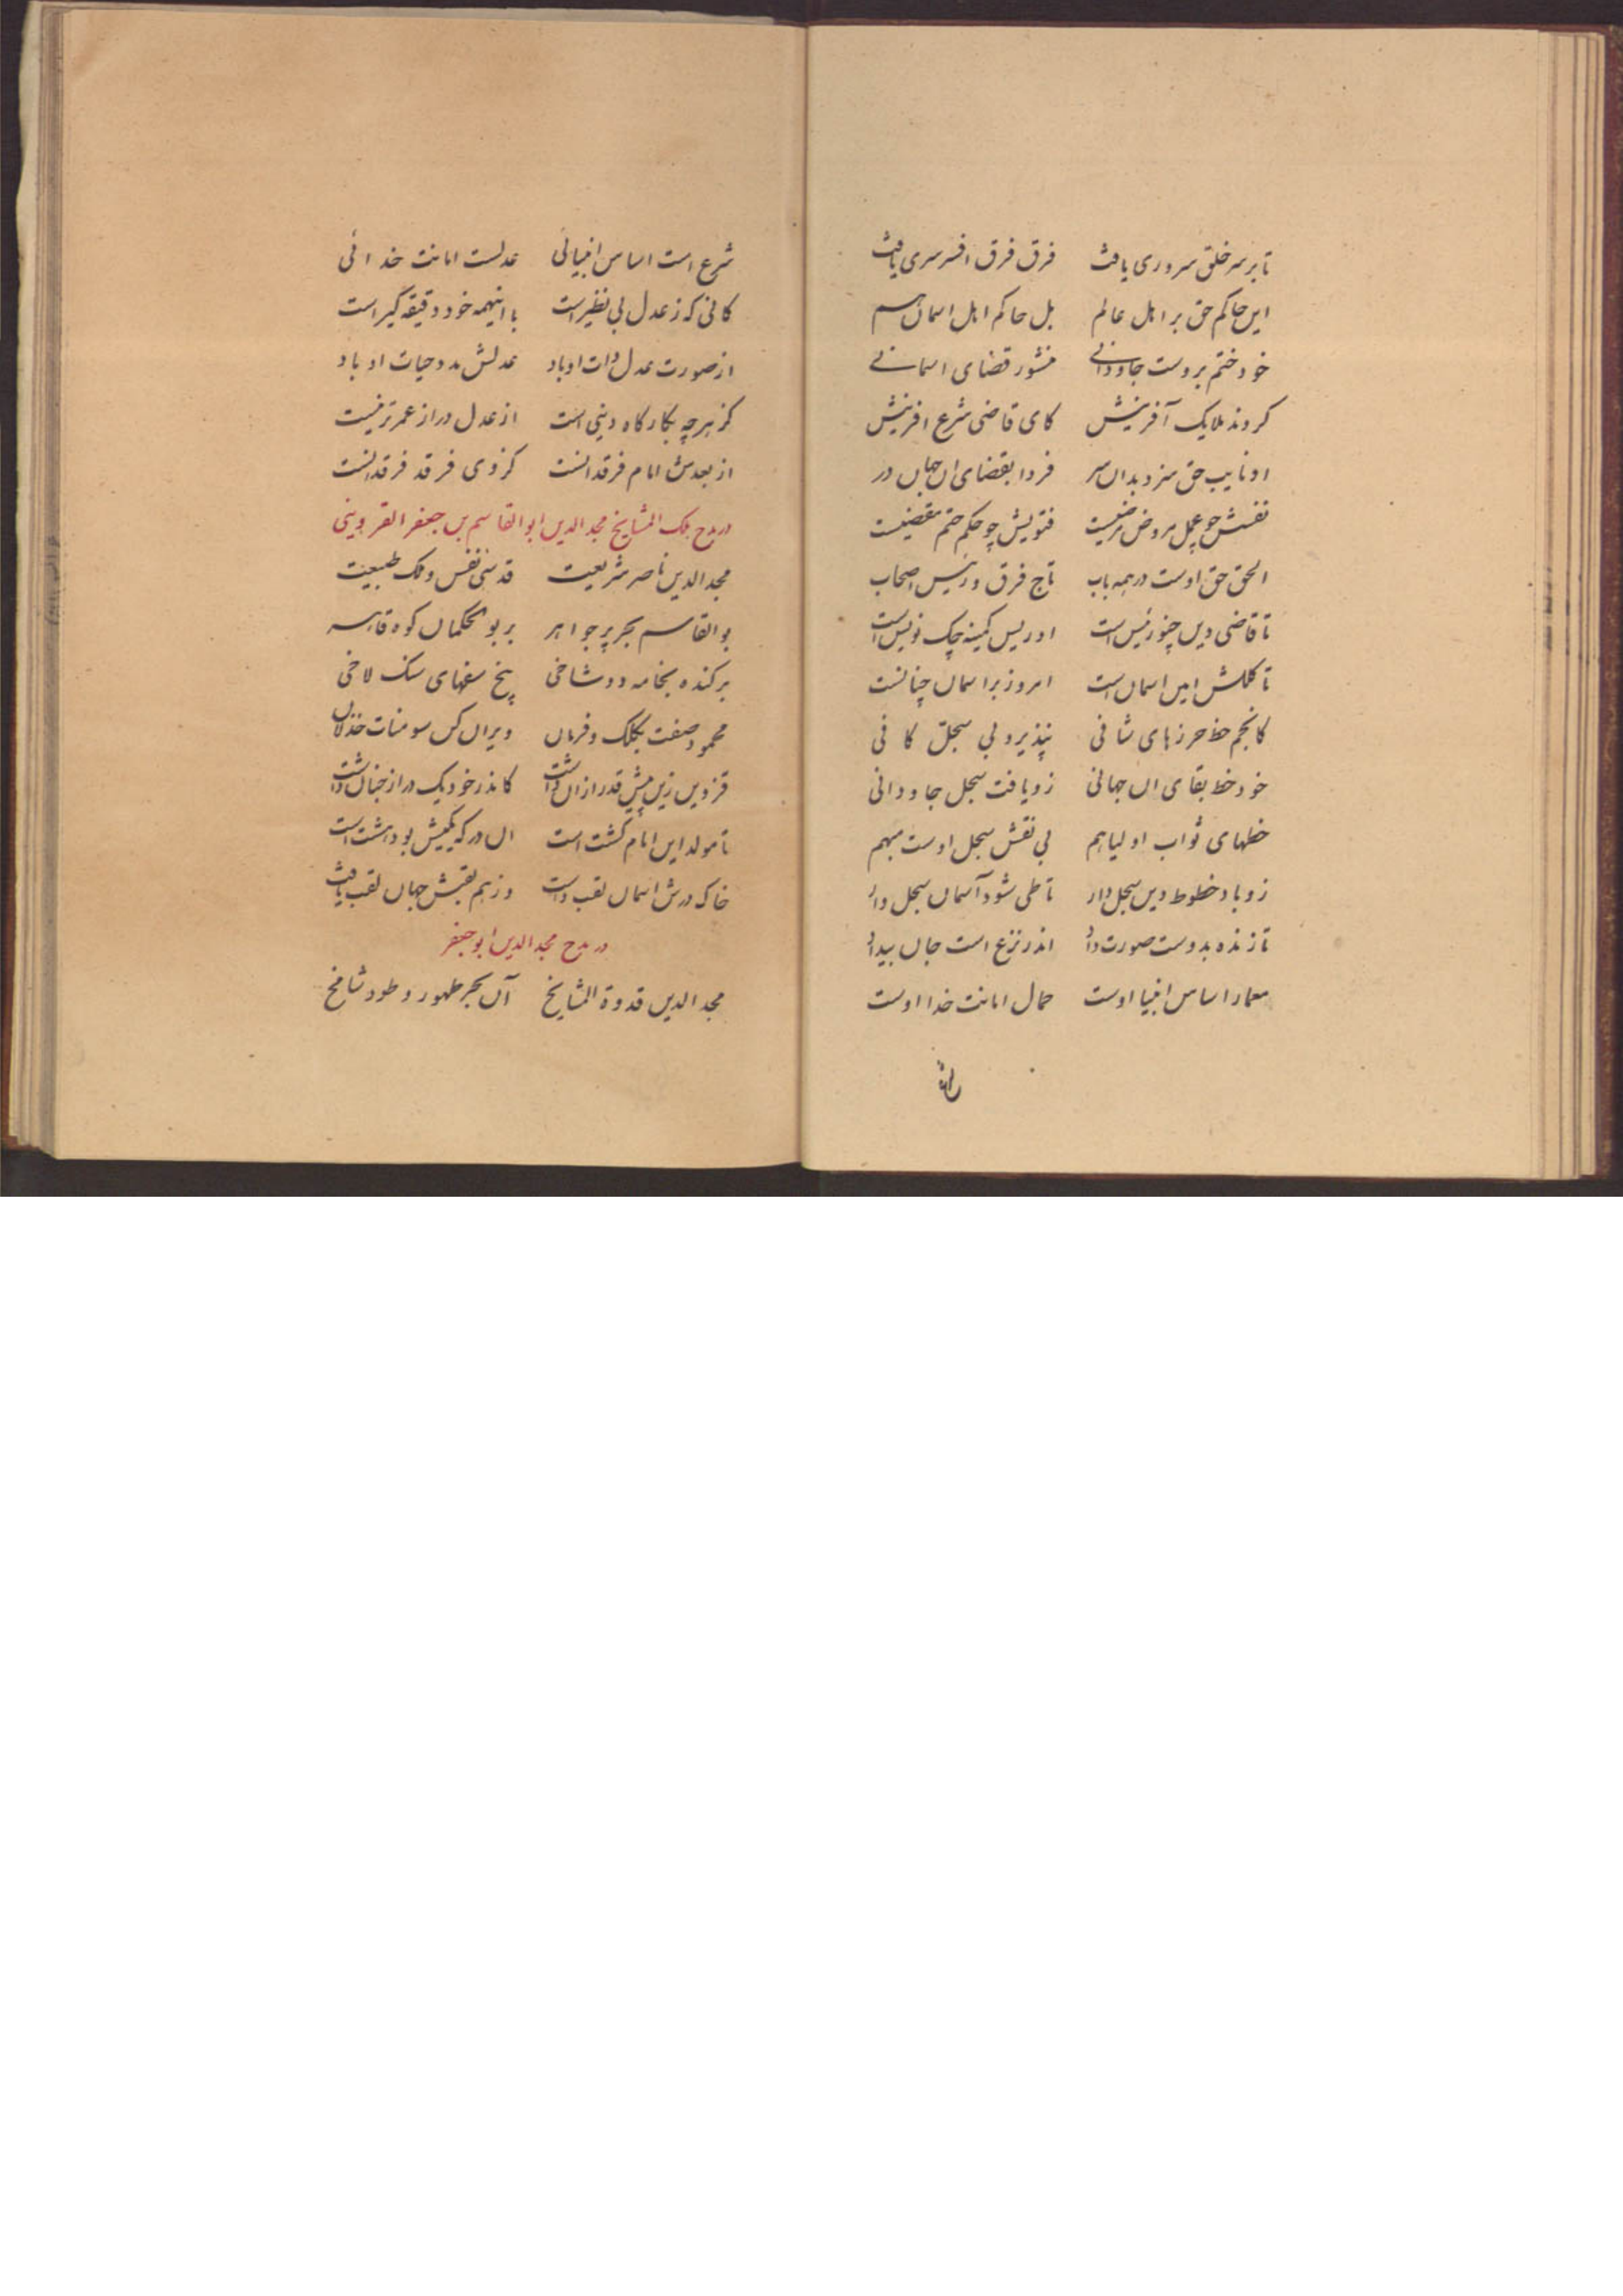 تا بر سر خلق سروری یافت فرق فرق افسر سری یافت
این حاکم حق بر اهل عالم بل حاکم اهل اسمان هم
خود ختم بروست جاودانی منشور قضای اسمانی
کروند ملایک آفرینش کای قاضی شرع افرینش
او نایب حق سزد بدان سر فردا بقضای ان جهان در
نفسش چو مرضیست فتویش چو حکم ختم مقضیست
الحق حق اوست در همه باب تاج فرق و رئیس اصحاب
تا قاضی دین چنو رئیس است ادریس کمینه چک نویس است
تا کلکش امین اسمان است امروز بر اسمان چنانست
کانجم خط حرزهای شافی نپذیرد بی سجل کافی
خود خط بقای ان جهانی زو یافت سجل جاودانی
خطهای ثواب اولیا هم بی نقش سجل اوست مبهم
زو باد خطوط دین سجل دار تا طی شود آسمان سجل وار
تا زنده بدوست صورت داد اندر نزع است جان بیداد
معمار اساس انبیا اوست حمال امانت خدا اوست
شرع است اساس انبیائی عدلست امانت خدائی
کانی که ز عدل بی نظیر است با اینهمه خود دقیقه گیر است
از صورت عدل ذات او باد عدلش مدد حیات او باد
کز هرچه بکارکاه دینی است از عدل دراز عمرتر نیست
از بعدش امام فرقدانست کز وی فرقد فرقدانست
در مدح ملک المشایخ مجد الدین ابو القاسم بن جعفر القزوینی
مجد الدین ناصر شریعت قدسی نفس و ملک طبیعت
بو القاسم بحر پر جواهر بر بو الحکمان کوه قاهر
برکنده بخامه دو شاخی بیخ سفهای سنک لاخی
محمود صفت بکلک و فرمان ویران کن سومنات خذلان
قزوین زین پیش قدر ازان داشت کاندر خود یک در از جنان داشت
تا مولد این امام کشت است ان در که یکیش بود هشت است
خاک درش اسمان لقب داشت وز هم لقبش جهان لقب یافت
در مدح مجد الدین ابو جعفر
مجد الدین قدوة المشایخ آن بحر طهور و طود شامخ